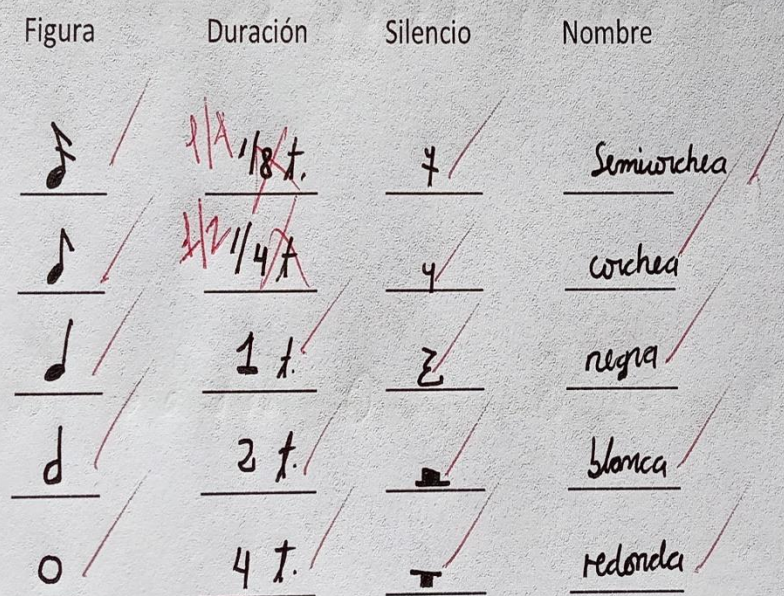 Figura Duración Silencio Nombre
1/4 1/8 t. Semicorchea
1/2 1/4 t corchea
1 t. negra
2 t. blanca
4 t. redonda